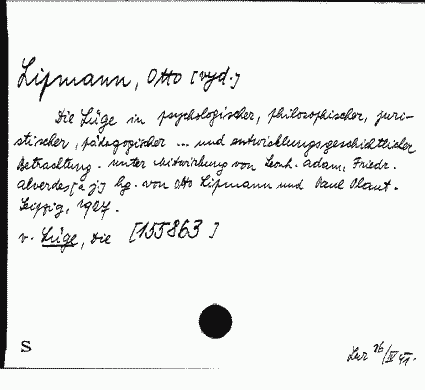 Lipmann, Otto [vyd.]
Die Lüge in psychologischer, philosophischer, juri-
stischer, pädagogischer ... und entwicklungsgeschichtlicher
Betrachtung. unter Mitwirkung von Leonh. Adam, Friedr.
Alverdes [a j.] hg. von Otto Lipmann und Paul Plaut.
Leipzig, 1927.
v. Lüge, Die [155863]
S